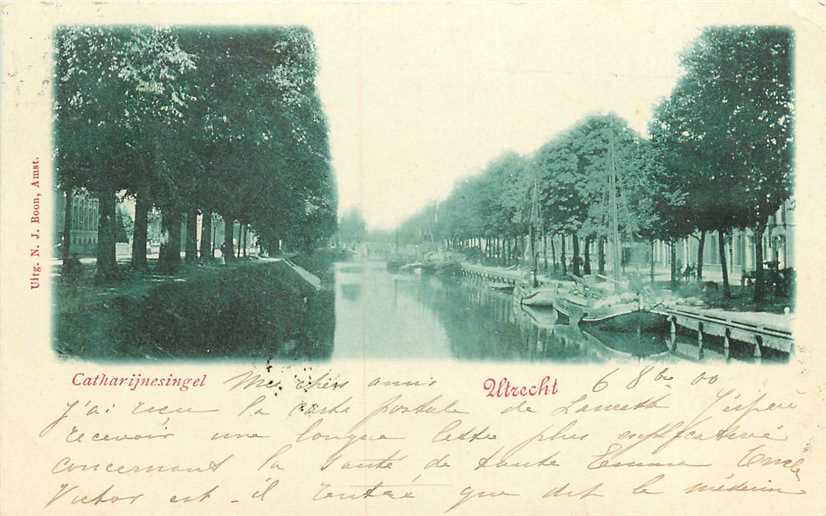 Uitg. N. J. Boon, Amst.
Catharijnesingel
Utrecht
Mes chers amis 6 8bre 00
J'ai reçu la carte postale de J'espère
recevoir une longue lettre plus explicative
concernant la Santé de tante Emma Oncle
Victor est-il rentré que dit le médecin